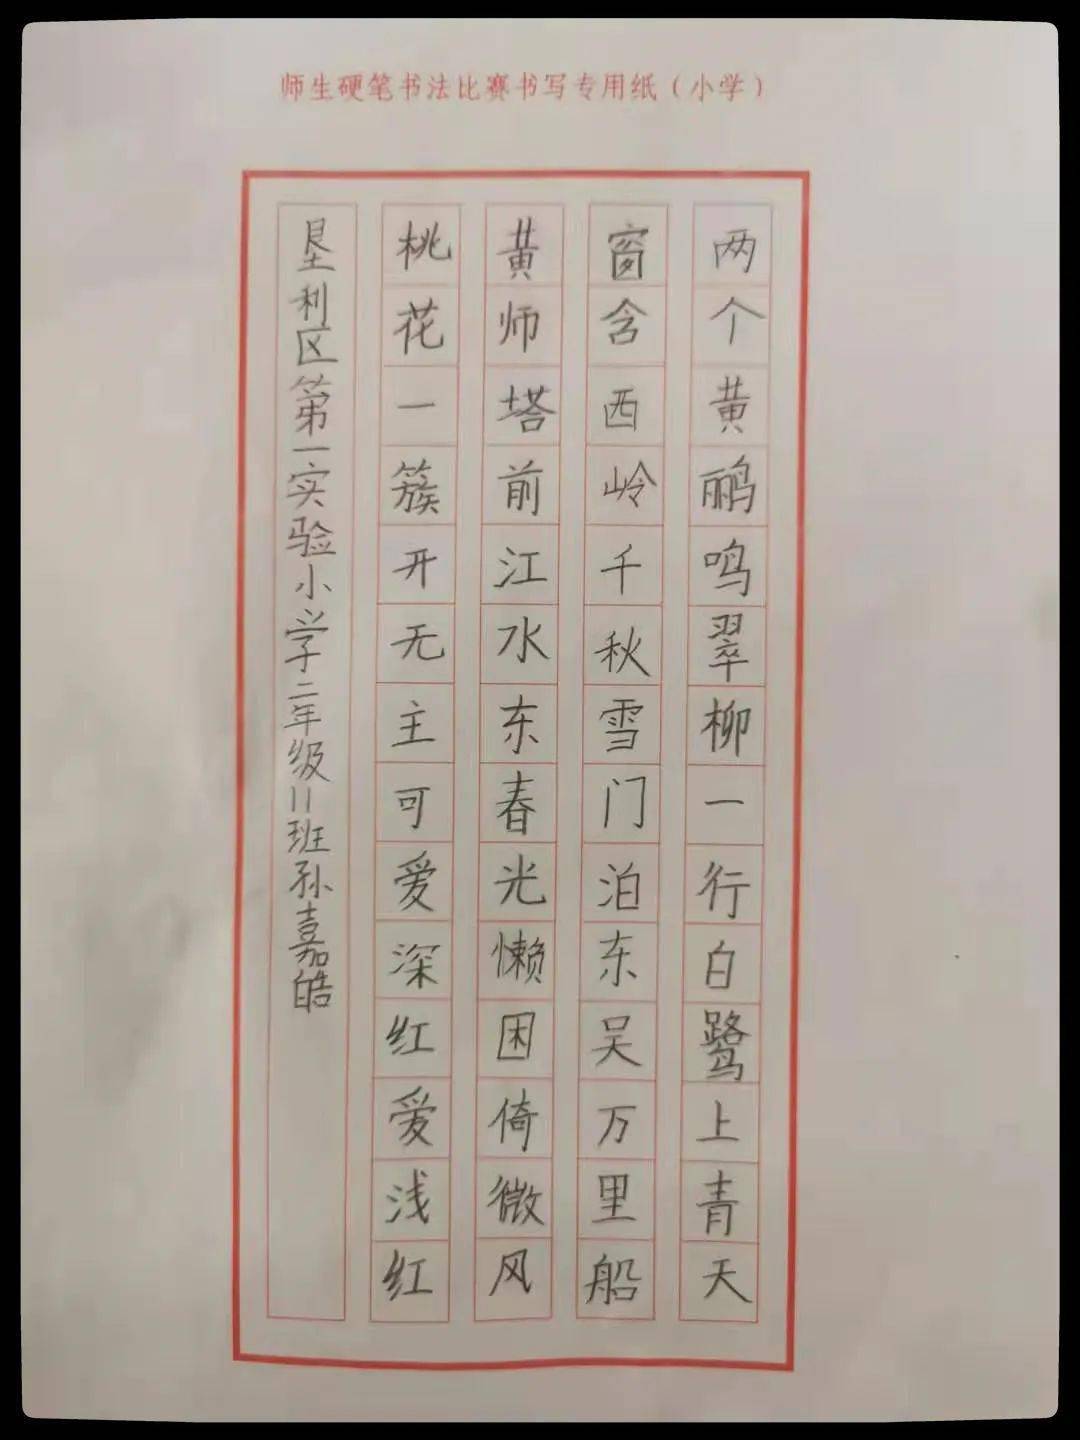 师生硬笔书法比赛书写专用纸（小学）
两个黄鹂鸣翠柳一行白鹭上青天
窗含西岭千秋雪门泊东吴万里船
黄师塔前江水东春光懒困倚微风
桃花一簇开无主可爱深红爱浅红
垦利区第一实验小学二年级11班孙嘉皓